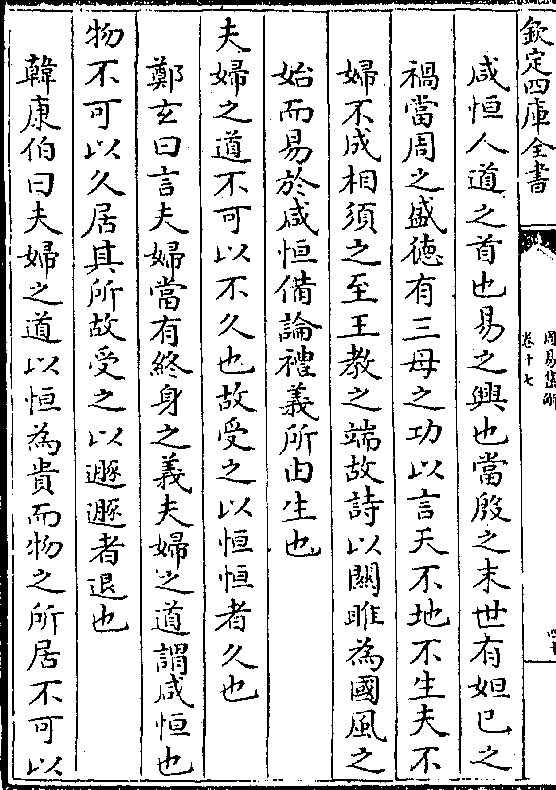 欽定四庫全書
周易集解
卷十七
四十
咸恒人道之首也易之興也當殷之末世有妲己之
禍當周之盛德有三母之功以言天不地不生夫不
婦不成相須之至王教之端故詩以關雎為國風之
始而易於咸恒備論禮義所由生也
夫婦之道不可以不久也故受之以恒恒者久也
鄭玄曰言夫婦當有終身之義夫婦之道謂咸恒也
物不可以久居其所故受之以遯遯者退也
韓康伯曰夫婦之道以恒為貴而物之所居不可以